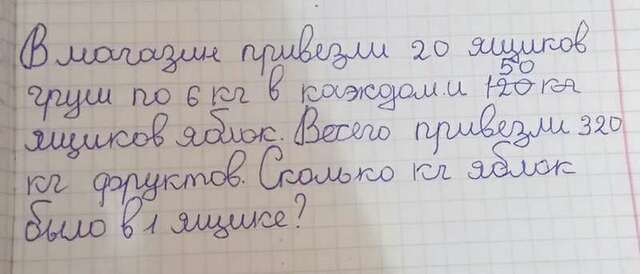 В магазин привезли 20 ящиков
50
груш по 6 кг в каждом и 120 кг
ящиков яблок. Всего привезли 320
кг фруктов. Сколько кг яблок
было в 1 ящике?